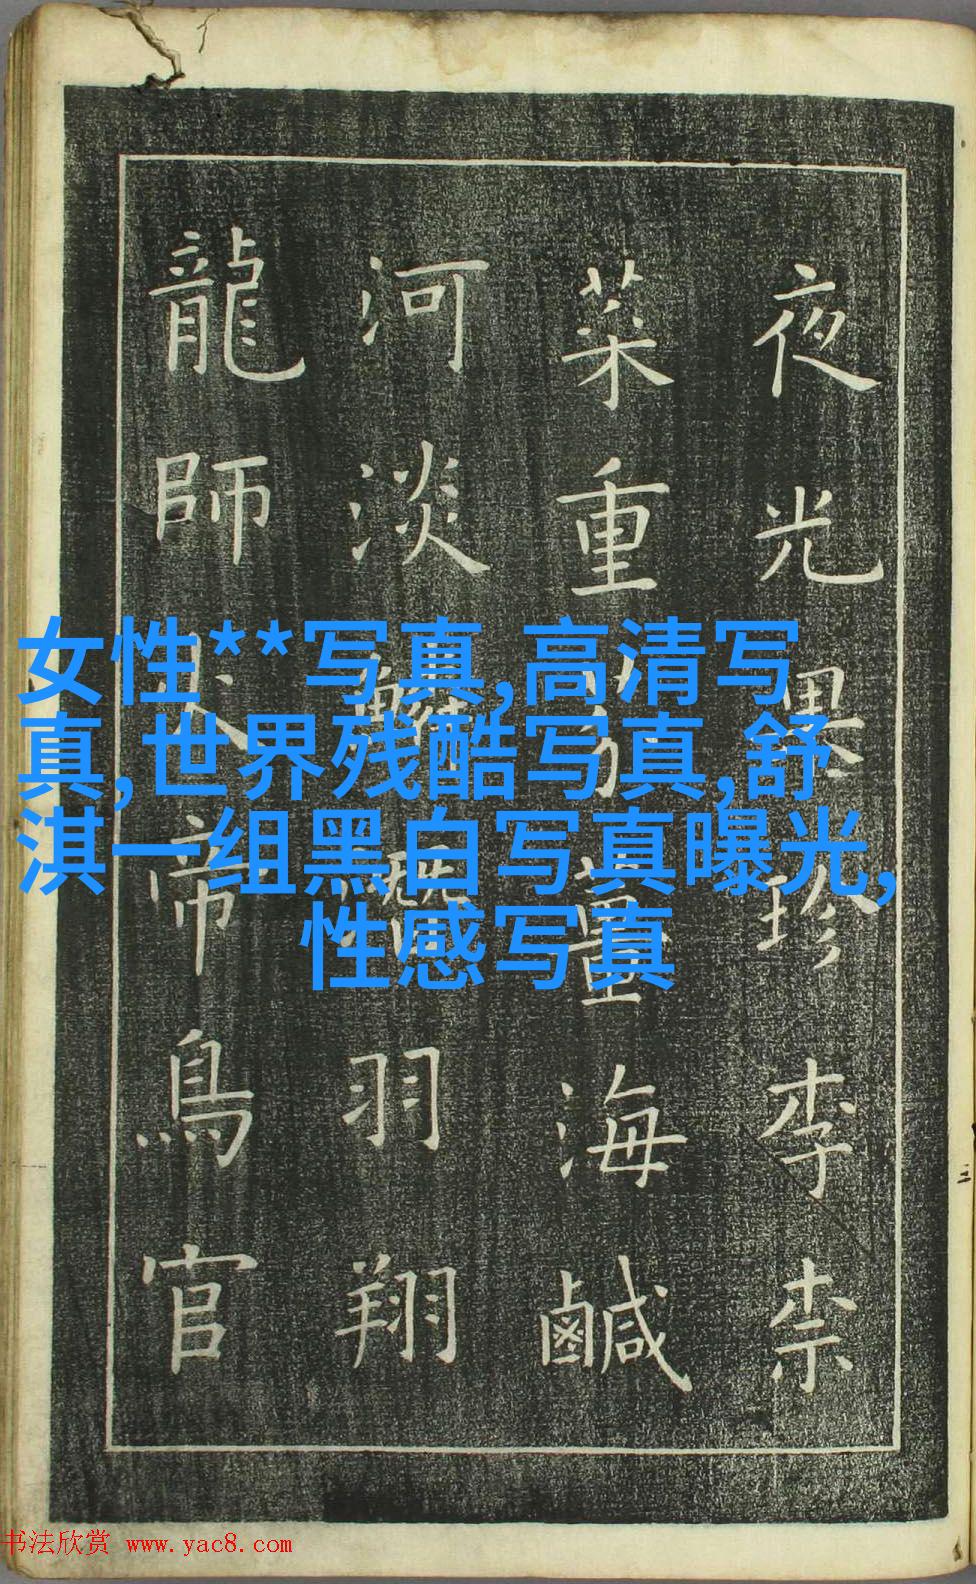 夜光果珍李柰
菜重薑海鹹
河淡鱗羽翔
龍師火帝鳥官
女性**写真,高清写
真,世界残酷写真,舒
淇一组黑白写真曝光,
性感写真
书法欣赏 www.yac8.com